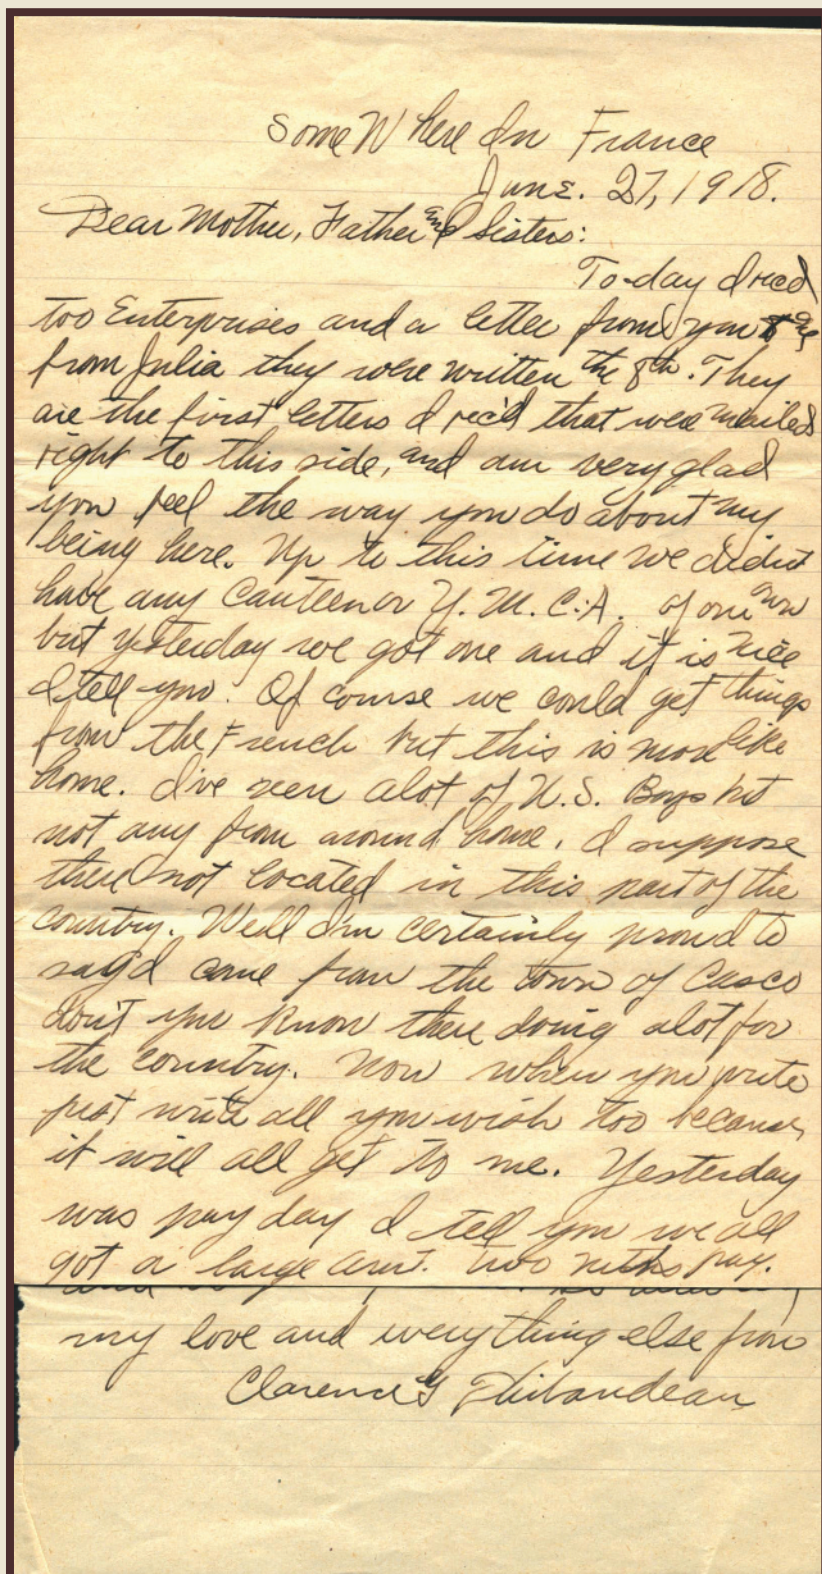 Some Where In France
June. 27, 1918.
Dear Mother, Father and Sisters:
To-day I recd
too Enterprises and a letter from you &
from Julia they were written the 8th. They
are the first letters I rec'd that were mailed
right to this side, and am very glad
you feel the way you do about my
being here. Up to this time we didnt
have any Canteen or Y.M.C.A. of our own
but yesterday we got one and it is nice
I tell you. Of course we could get things
from the French but this is more like
home. I've seen alot of U.S. Boys but
not any from around home. I suppose
there not located in this part of the
country. Well I'm certainly proud to
say I'd come from the town of Casco
don't you know there doing alot for
the country. Now when you write
just write all you wish too because
it will all get to me. Yesterday
was pay day I tell you we all
got a large amt. two mths pay.
my love and everything else from
Clarence G Thibaudeau